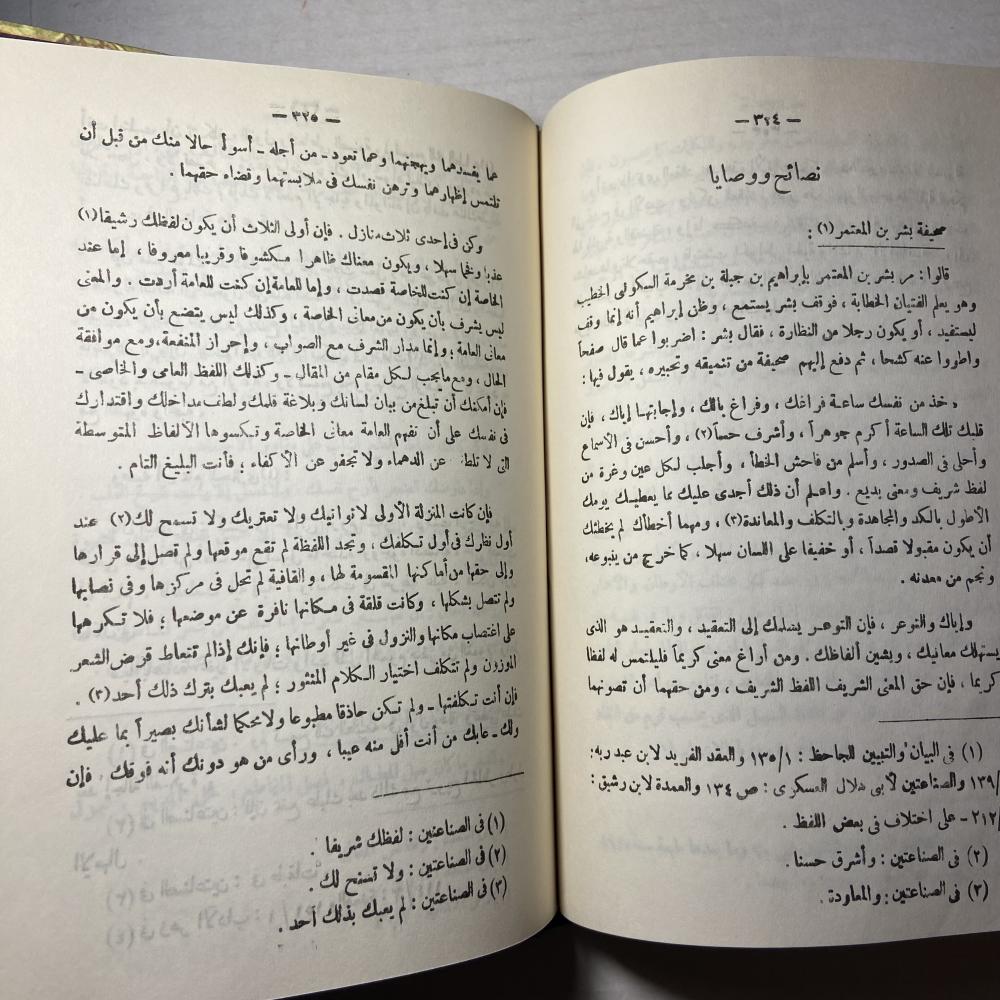 — ٣٢٤ —
نصائح ووصايا
صحيفة بشر بن المعتمر (١) :
قالوا : مر بشر بن المعتمر بإبراهيم بن جبلة بن مخرمة السكونى الخطيب
وهو يعلم الفتيان الخطابة ، فوقف بشر يستمع ، وظن إبراهيم أنه إنما وقف
ليستفيد ، أو يكون رجلا من النظارة ، فقال بشر : اضربوا عما قال صفحاً
واطووا عنه كشحا ، ثم دفع إليهم صحيفة من تنميقه وتحبيره ، يقول فيها :
خذ من نفسك ساعة فراغك ، وفراغ بالك ، وإجابتها إياك ، فإن
قلبك تلك الساعة أكرم جوهراً ، وأشرف حساً (٢) ، وأحسن فى الأسماع
وأحلى فى الصدور ، وأسلم من فاحش الخطأ ، وأجلب لكل عين وغرة من
لفظ شريف ومعنى بديع . واعلم أن ذلك أجدى عليك مما يعطيك يومك
الأطول بالكد والمجاهدة وبالتكلف والمعاندة (٣) ، ومهما أخطأك لم يخطئك
أن يكون مقبولا قصداً ، أو خفيفا على اللسان سهلا ، كما خرج من ينبوعه ،
ونجم من معدنه .
وإياك والتوعر ، فإن التوعر يسلمك إلى التعقيد ، والتعقيد هو الذى
يستهلك معانيك ، ويشين ألفاظك . ومن أراغ معنى كريماً فليلتمس له لفظا
كريما ، فإن حق المعنى الشريف اللفظ الشريف ، ومن حقهما أن تصونهما
(١) فى البيان والتبيين للجاحظ : ١٣٥/١ والعقد الفريد لابن عبد ربه :
١٣٩/ والصناعتين لأبى هلال العسكرى : ص ١٣٤ والعمدة لابن رشيق :
٢١٢/ — على اختلاف فى بعض اللفظ .
(٢) فى الصناعتين : وأشرق حسنا .
(٣) فى الصناعتين : والمعاودة .
— ٣٢٥ —
عما يفسدهما ويهجنهما وعما تعود — من أجله — أسوأ حالا منك من قبل أن
تلتمس إظهارهما وترهن نفسك فى ملابستهما وقضاء حقهما .
وكن فى إحدى ثلاث منازل . فإن أولى الثلاث أن يكون لفظك رشيقا (١)
عذبا وفخما سهلا ، ويكون معناك ظاهرا مكشوفا وقريبا معروفا ، إما عند
الخاصة إن كنت للخاصة قصدت ، وإما للعامة إن كنت للعامة أردت . والمعنى
ليس يشرف بأن يكون من معانى الخاصة ، وكذلك ليس يتضع بأن يكون من
معانى العامة ؛ وإنما مدار الشرف مع الصواب ، وإحراز المنفعة ، ومع موافقة
الحال ، ومع مايجب لكل مقام من المقال — وكذلك اللفظ العامى والخاصى —
فإن أمكنك أن تبلغ من بيان لسانك وبلاغة قلمك ولطف مداخلك واقتدارك
فى نفسك على أن تفهم العامة معانى الخاصة وتكسوها الألفاظ المتوسطة
التى لا تلطف عن الدهماء ولا تجفو عن الأكفاء ؛ فأنت البليغ التام .
فإن كانت المنزلة الأولى لا تواتيك ولا تعتريك ولا تسمح لك (٢) عند
أول نظرك فى أول تكلفك ، وتجد اللفظة لم تقع موقعها ولم تصل إلى قرارها
وإلى حقها من أماكنها المقسومة لها ، والقافية لم تحل فى مركزها وفى نصابها
ولم تتصل بشكلها ، وكانت قلقة فى مكانها نافرة عن موضعها ؛ فلا تكرهها
على اغتصاب مكانها والنزول فى غير أوطانها ؛ فإنك إذا لم تتعاط قرض الشعر
الموزون ولم تتكلف اختيار الكلام المنثور ؛ لم يعبك بترك ذلك أحد (٣) .
فإن أنت تكلفتها — ولم تكن حاذقا مطبوعا ولا محكما لشأنك بصيراً بما عليك
ولك — عابك من أنت أقل منه عيبا ، ورأى من هو دونك أنه فوقك . فإن
(١) فى الصناعتين : لفظك شريفا .
(٢) فى الصناعتين : ولا تسنح لك .
(٣) فى الصناعتين : لم يعبك بذلك أحد .